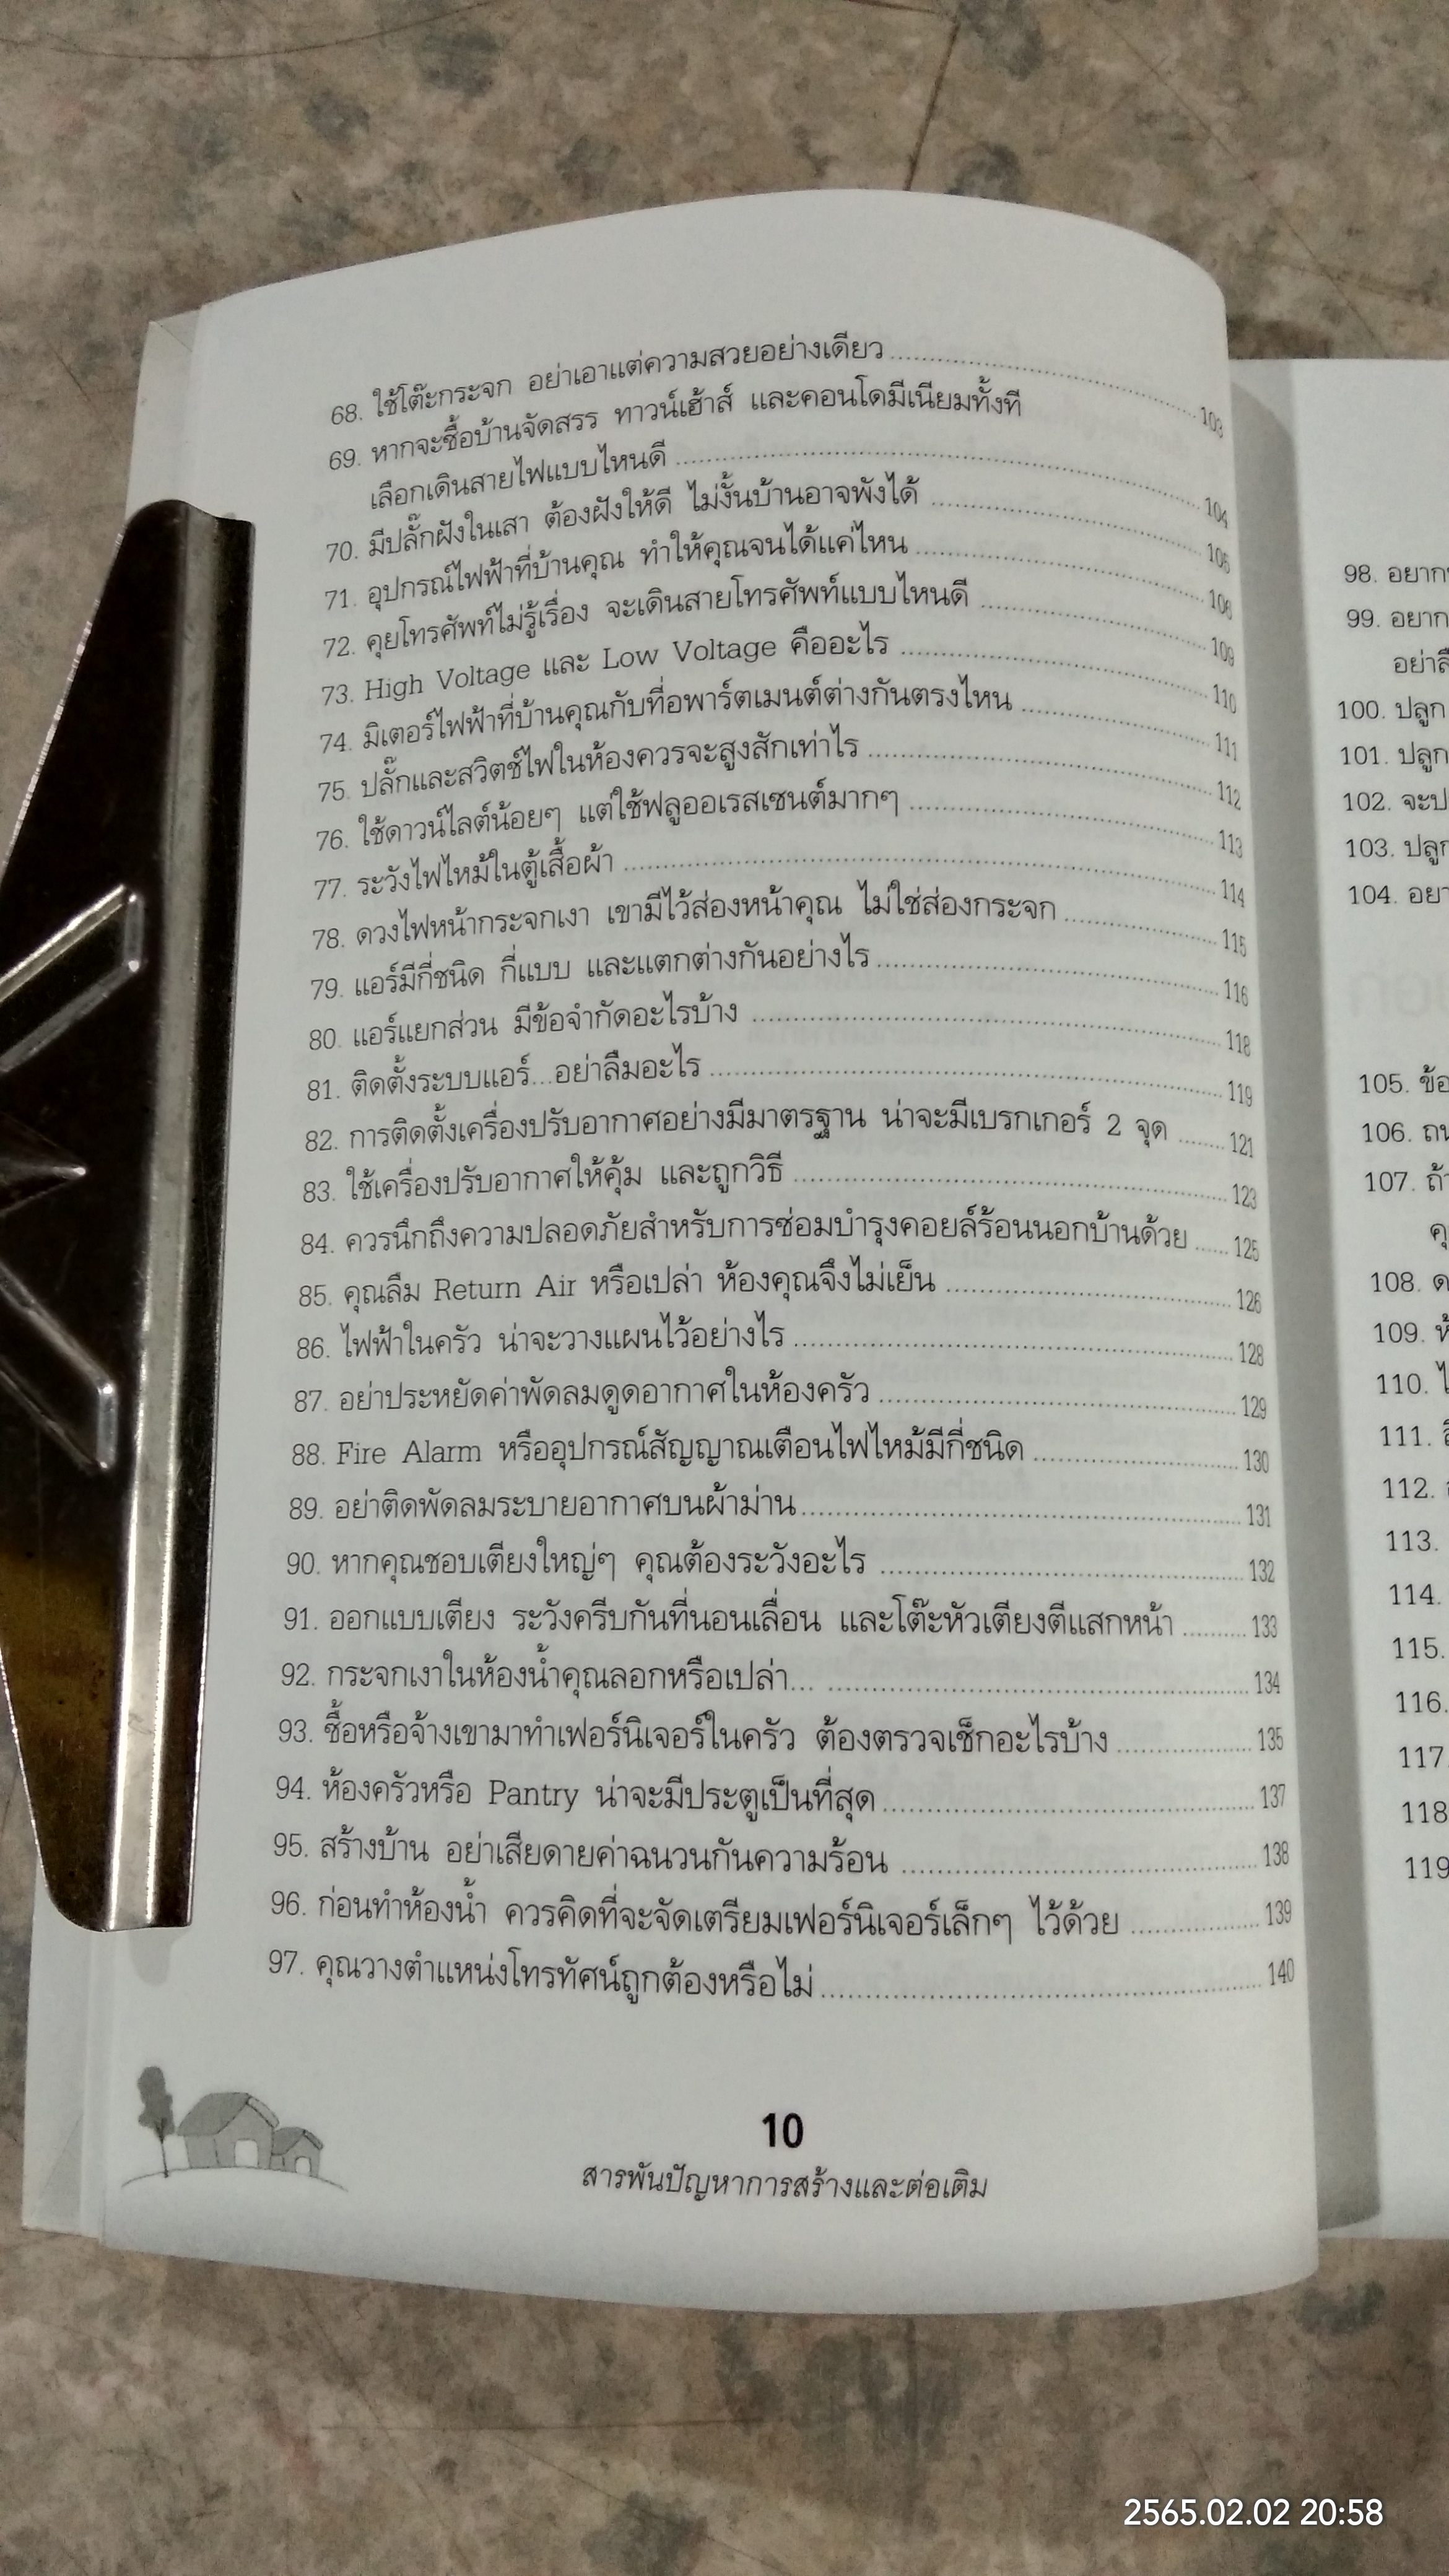 68. ใช้โต๊ะกระจก อย่าเอาแต่ความสวยอย่างเดียว ........ 103
69. หากจะซื้อบ้านจัดสรร ทาวน์เฮ้าส์ และคอนโดมีเนียมทั้งที
เลือกเดินสายไฟแบบไหนดี ........ 104
70. มีปลั๊กฝังในเสา ต้องฝังให้ดี ไม่งั้นบ้านอาจพังได้ ........
71. อุปกรณ์ไฟฟ้าที่บ้านคุณ ทำให้คุณจนได้แค่ไหน ........
72. คุยโทรศัพท์ไม่รู้เรื่อง จะเดินสายโทรศัพท์แบบไหนดี ........ 109
73. High Voltage และ Low Voltage คืออะไร ........ 110
74. มิเตอร์ไฟฟ้าที่บ้านคุณกับที่อพาร์ตเมนต์ต่างกันตรงไหน ........ 111
75. ปลั๊กและสวิตช์ไฟในห้องควรจะสูงสักเท่าไร ........ 112
76. ใช้ดาวน์ไลต์น้อยๆ แต่ใช้ฟลูออเรสเซนต์มากๆ ........ 113
77. ระวังไฟไหม้ในตู้เสื้อผ้า ........ 114
78. ดวงไฟหน้ากระจกเงา เขามีไว้ส่องหน้าคุณ ไม่ใช่ส่องกระจก ........ 115
79. แอร์มีกี่ชนิด กี่แบบ และแตกต่างกันอย่างไร ........ 116
80. แอร์แยกส่วน มีข้อจำกัดอะไรบ้าง ........ 118
81. ติดตั้งระบบแอร์...อย่าลืมอะไร ........ 119
82. การติดตั้งเครื่องปรับอากาศอย่างมีมาตรฐาน น่าจะมีเบรกเกอร์ 2 จุด ........ 121
83. ใช้เครื่องปรับอากาศให้คุ้ม และถูกวิธี ........ 123
84. ควรนึกถึงความปลอดภัยสำหรับการซ่อมบำรุงคอยล์ร้อนนอกบ้านด้วย ...... 125
85. คุณลืม Return Air หรือเปล่า ห้องคุณจึงไม่เย็น ........ 126
86. ไฟฟ้าในครัว น่าจะวางแผนไว้อย่างไร ........ 128
87. อย่าประหยัดค่าพัดลมดูดอากาศในห้องครัว ........ 129
88. Fire Alarm หรืออุปกรณ์สัญญาณเตือนไฟไหม้มีกี่ชนิด ........ 130
89. อย่าติดพัดลมระบายอากาศบนผ้าม่าน ........ 131
90. หากคุณชอบเตียงใหญ่ๆ คุณต้องระวังอะไร ........ 132
91. ออกแบบเตียง ระวังครีบกันที่นอนเลื่อน และโต๊ะหัวเตียงตีแสกหน้า .......... 133
92. กระจกเงาในห้องน้ำคุณลอกหรือเปล่า... ........ 134
93. ซื้อหรือจ้างเขามาทำเฟอร์นิเจอร์ในครัว ต้องตรวจเช็กอะไรบ้าง ........ 135
94. ห้องครัวหรือ Pantry น่าจะมีประตูเป็นที่สุด ........ 137
95. สร้างบ้าน อย่าเสียดายค่าฉนวนกันความร้อน ........ 138
96. ก่อนทำห้องน้ำ ควรคิดที่จะจัดเตรียมเฟอร์นิเจอร์เล็กๆ ไว้ด้วย ........ 139
97. คุณวางตำแหน่งโทรทัศน์ถูกต้องหรือไม่ ........ 140
10
สารพันปัญหาการสร้างและต่อเติม
98.
99.
100. ปลูก
101. ปลูก
102.
103.
104.
105.
106.
107.
108.
109.
110.
111.
112.
113.
114.
115.
116.
117.
118
119
2565.02.02 20:58